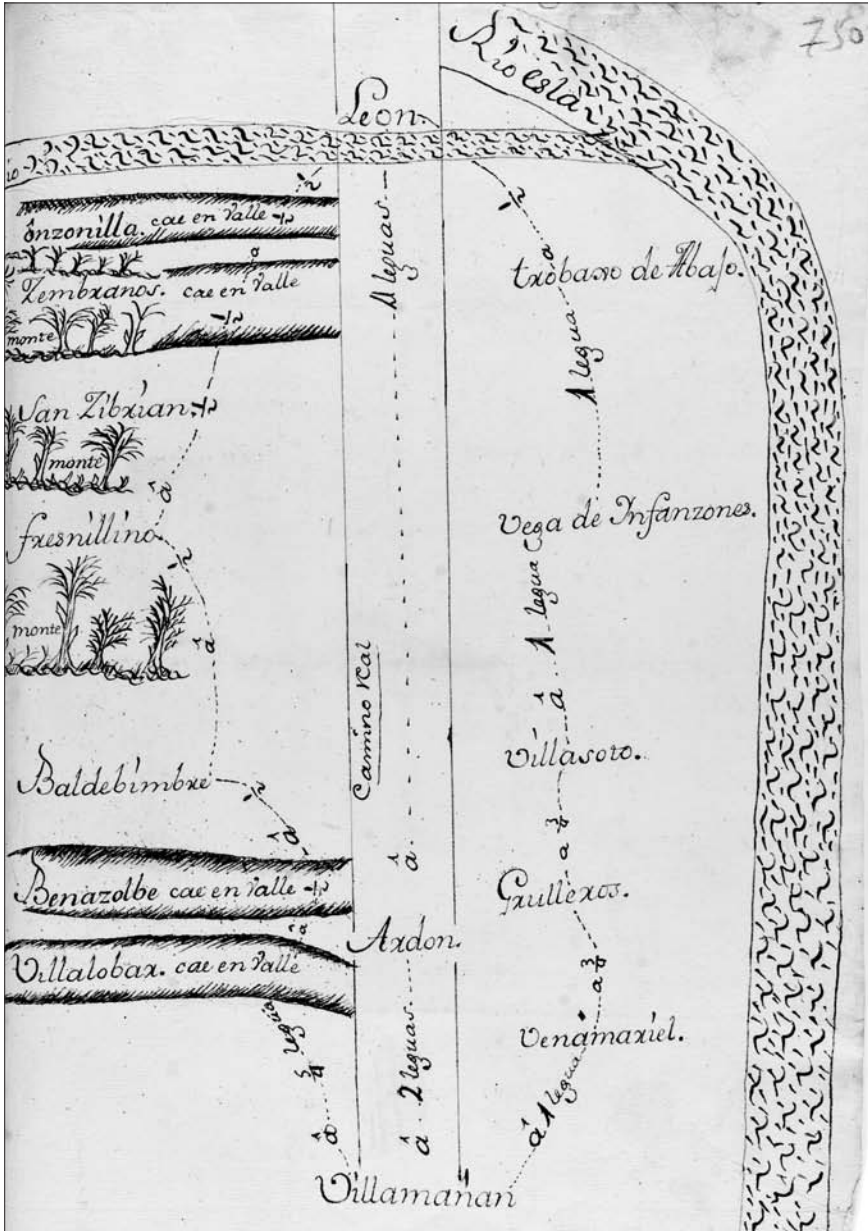 750
Río esla
Leon.
onzonilla. cae en valle
Zembranos. cae en valle
monte
San Zibrian.
monte
fresnillino
monte
Baldebimbre
Benazolbe cae en valle
Villalobar. cae en valle
legua
â
4 leguas.
Camino real
â
Ardon.
2 leguas.
â
trobaxo de Abajo.
a
1 legua
Vega de Infanzones.
1 legua
â
Villasoto.
a
Grulleros.
a
Venamariel.
â 1 legua
Villamañan